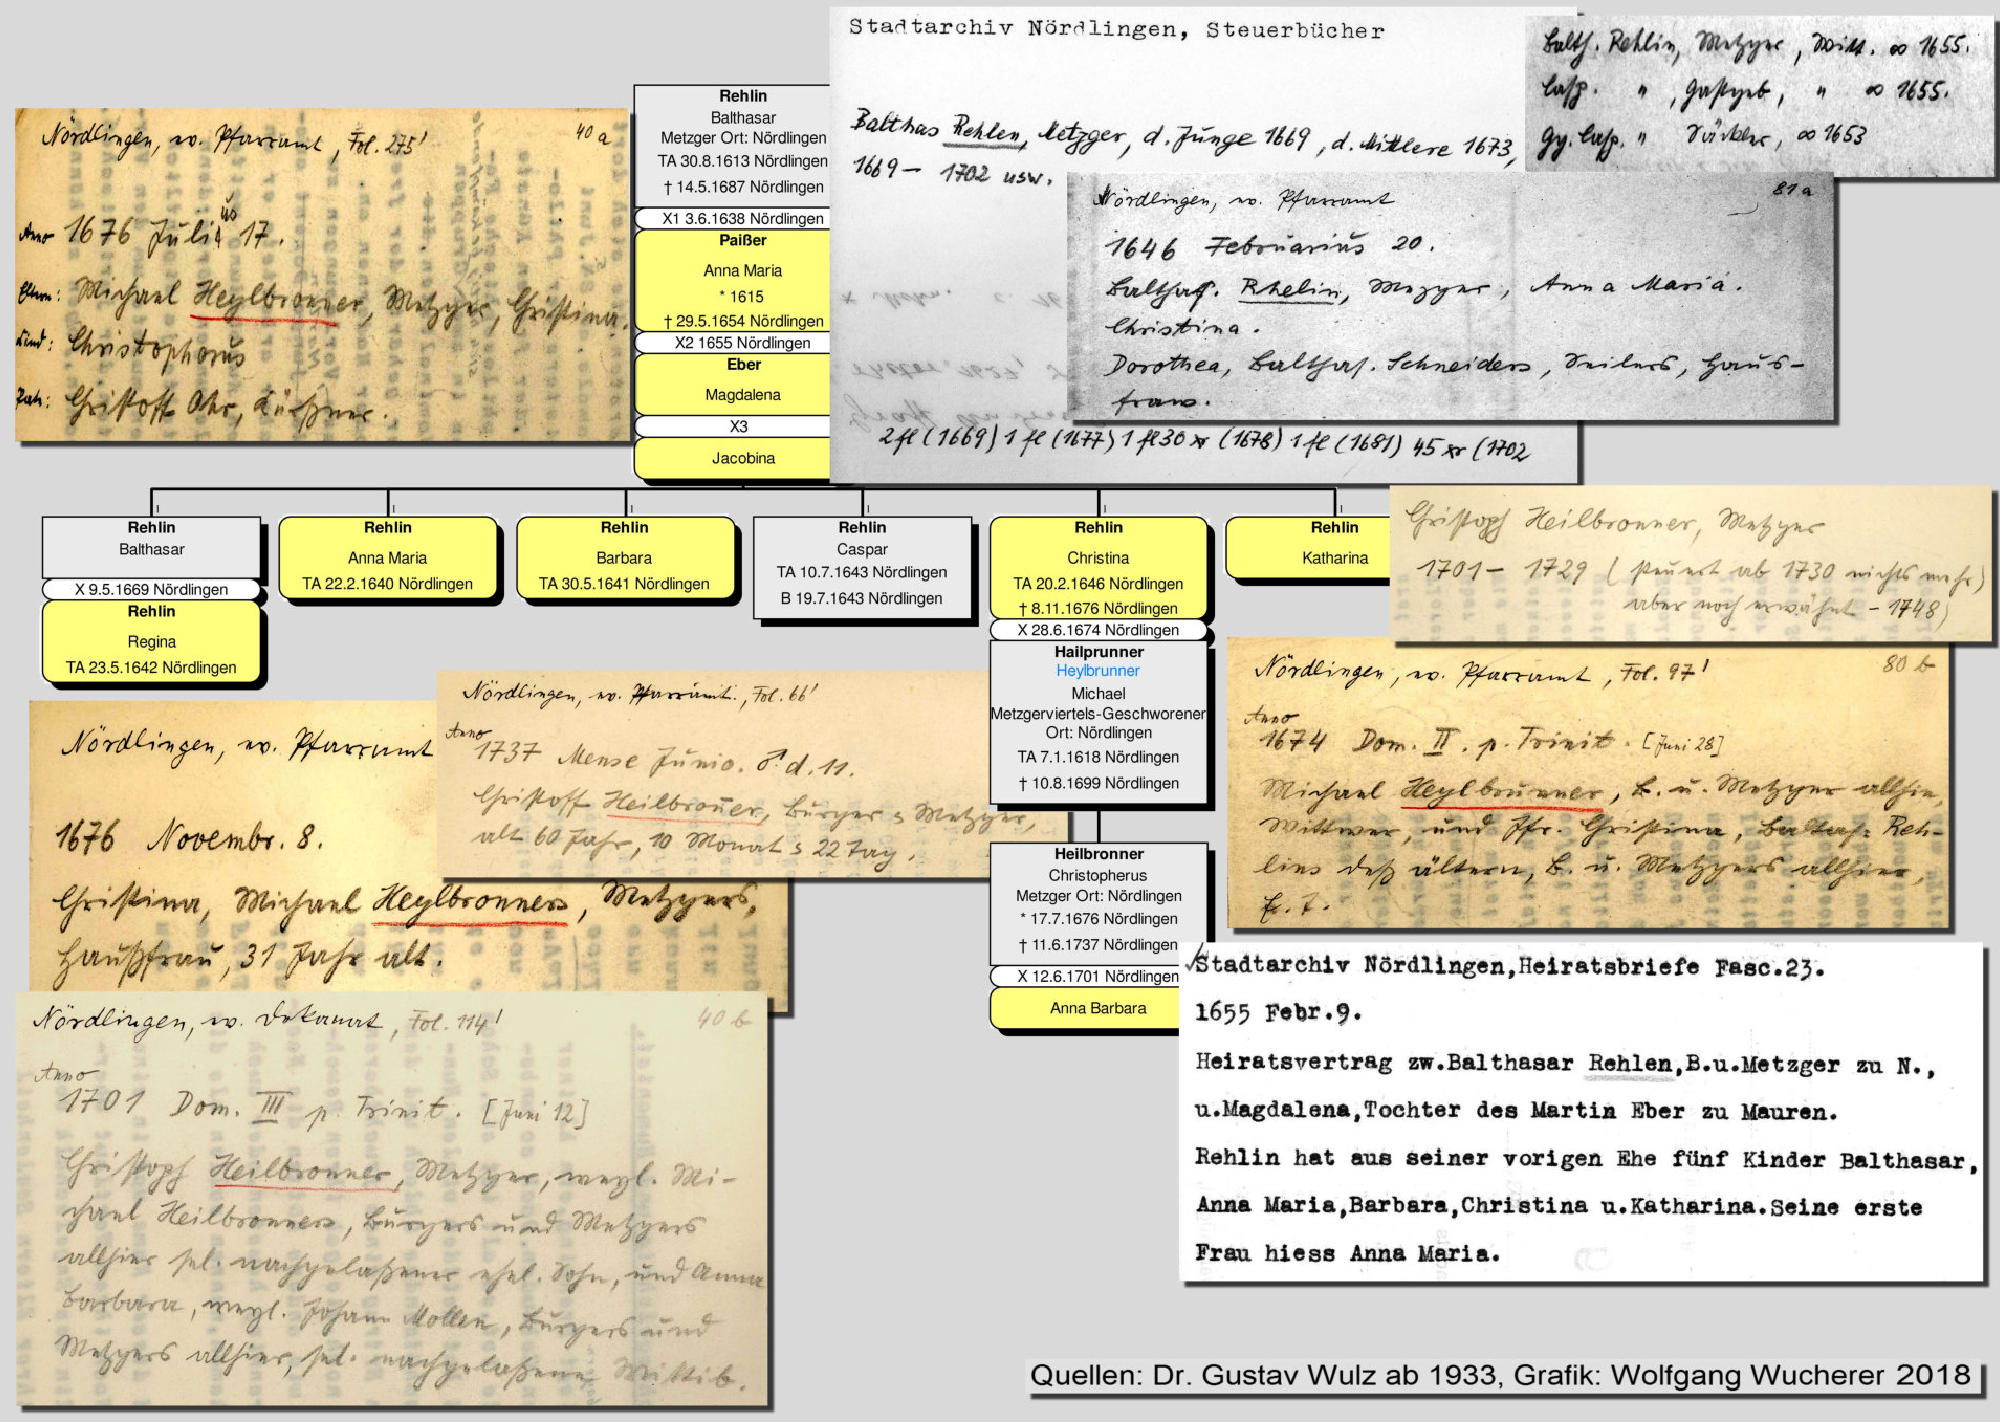 Stadtarchiv Nördlingen, Steuerbücher
Balthas Rehlen, Metzger, d. Junge 1669, d. Mittlere 1673,
1669 – 1702 usw.
2 fl (1669) 1 fl (1677) 1 fl 30 xr (1678) 1 fl (1681) 45 xr (1702
Balth. Rehlin, Metzger, Witt. ∞ 1655.
Casp. " , Gastgeb, " ∞ 1655.
Gg. Casp. " , ∞ 1653
Nördlingen, ev. Pfarramt 81 a
1646 Februarius 20.
Balthas. Rhelin, Mezger, Anna Maria.
Christina.
Dorothea, Balthas. Schneiders, Seilers, Haus-
fraw.
Nördlingen, ev. Pfarramt, Fol. 275' 40 a
Anno 1676 Julius 17.
Eltern: Michael Heylbronner, Metzger, Christina.
Kind: Christophorus
Path: Christoff Ohr, Kürßner.
Rehlin
Balthasar
Metzger Ort: Nördlingen
TA 30.8.1613 Nördlingen
† 14.5.1687 Nördlingen
X1 3.6.1638 Nördlingen
Paißer
Anna Maria
* 1615
† 29.5.1654 Nördlingen
X2 1655 Nördlingen
Eber
Magdalena
X3
Jacobina
Rehlin
Balthasar
X 9.5.1669 Nördlingen
Rehlin
Regina
TA 23.5.1642 Nördlingen
Rehlin
Anna Maria
TA 22.2.1640 Nördlingen
Rehlin
Barbara
TA 30.5.1641 Nördlingen
Rehlin
Caspar
TA 10.7.1643 Nördlingen
B 19.7.1643 Nördlingen
Rehlin
Christina
TA 20.2.1646 Nördlingen
† 8.11.1676 Nördlingen
X 28.6.1674 Nördlingen
Hailprunner
Heylbrunner
Michael
Metzgerviertels-Geschworener
Ort: Nördlingen
TA 7.1.1618 Nördlingen
† 10.8.1699 Nördlingen
Heilbronner
Christopherus
Metzger Ort: Nördlingen
* 17.7.1676 Nördlingen
† 11.6.1737 Nördlingen
X 12.6.1701 Nördlingen
Anna Barbara
Rehlin
Katharina
Christoph Heilbronner, Metzger
1701 – 1729 (steuert ab 1730 nichts mehr)
aber noch erwähnt – 1748)
Nördlingen, ev. Pfarramt, Fol. 97' 80 b
Anno
1674 Dom. II. p. Trinit. [Juni 28]
Michael Heylbrunner, B. u. Metzger allhie,
Wittwer, und Jfr. Christina, Baltas: Reh-
lins deß ältern, B. u. Metzgers allhier,
E. T.
Nördlingen, ev. Pfarramt
1676 Novembr. 8.
Christina, Michael Heylbronners, Metzgers,
Haußfrau, 31 Jahr alt.
Nördlingen, ev. Pfarramt., Fol. 66'
Anno
1737 Mense Junio. ♂ d. 11.
Christoff Heilbroner, Burger u Metzger,
alt 60 Jahr, 10 Monat u 22 Tag.
Nördlingen, ev. Dekanat, Fol. 114' 40 b
Anno
1701 Dom. III p. Trinit. [Juni 12]
Christoph Heilbronner, Metzger, weyl. Mi-
chael Heilbronners, Burgers und Metzgers
allhier sel. nachgelaßener ehel. Sohn, und Anna
Barbara, weyl. Johann Mollen, Burgers und
Metzgers allhier, sel. nachgelaßene Wittib.
Stadtarchiv Nördlingen,Heiratsbriefe Fasc.23.
1655 Febr.9.
Heiratsvertrag zw.Balthasar Rehlen,B.u.Metzger zu N.,
u.Magdalena,Tochter des Martin Eber zu Mauren.
Rehlin hat aus seiner vorigen Ehe fünf Kinder Balthasar,
Anna Maria,Barbara,Christina u.Katharina.Seine erste
Frau hiess Anna Maria.
Quellen: Dr. Gustav Wulz ab 1933, Grafik: Wolfgang Wucherer 2018